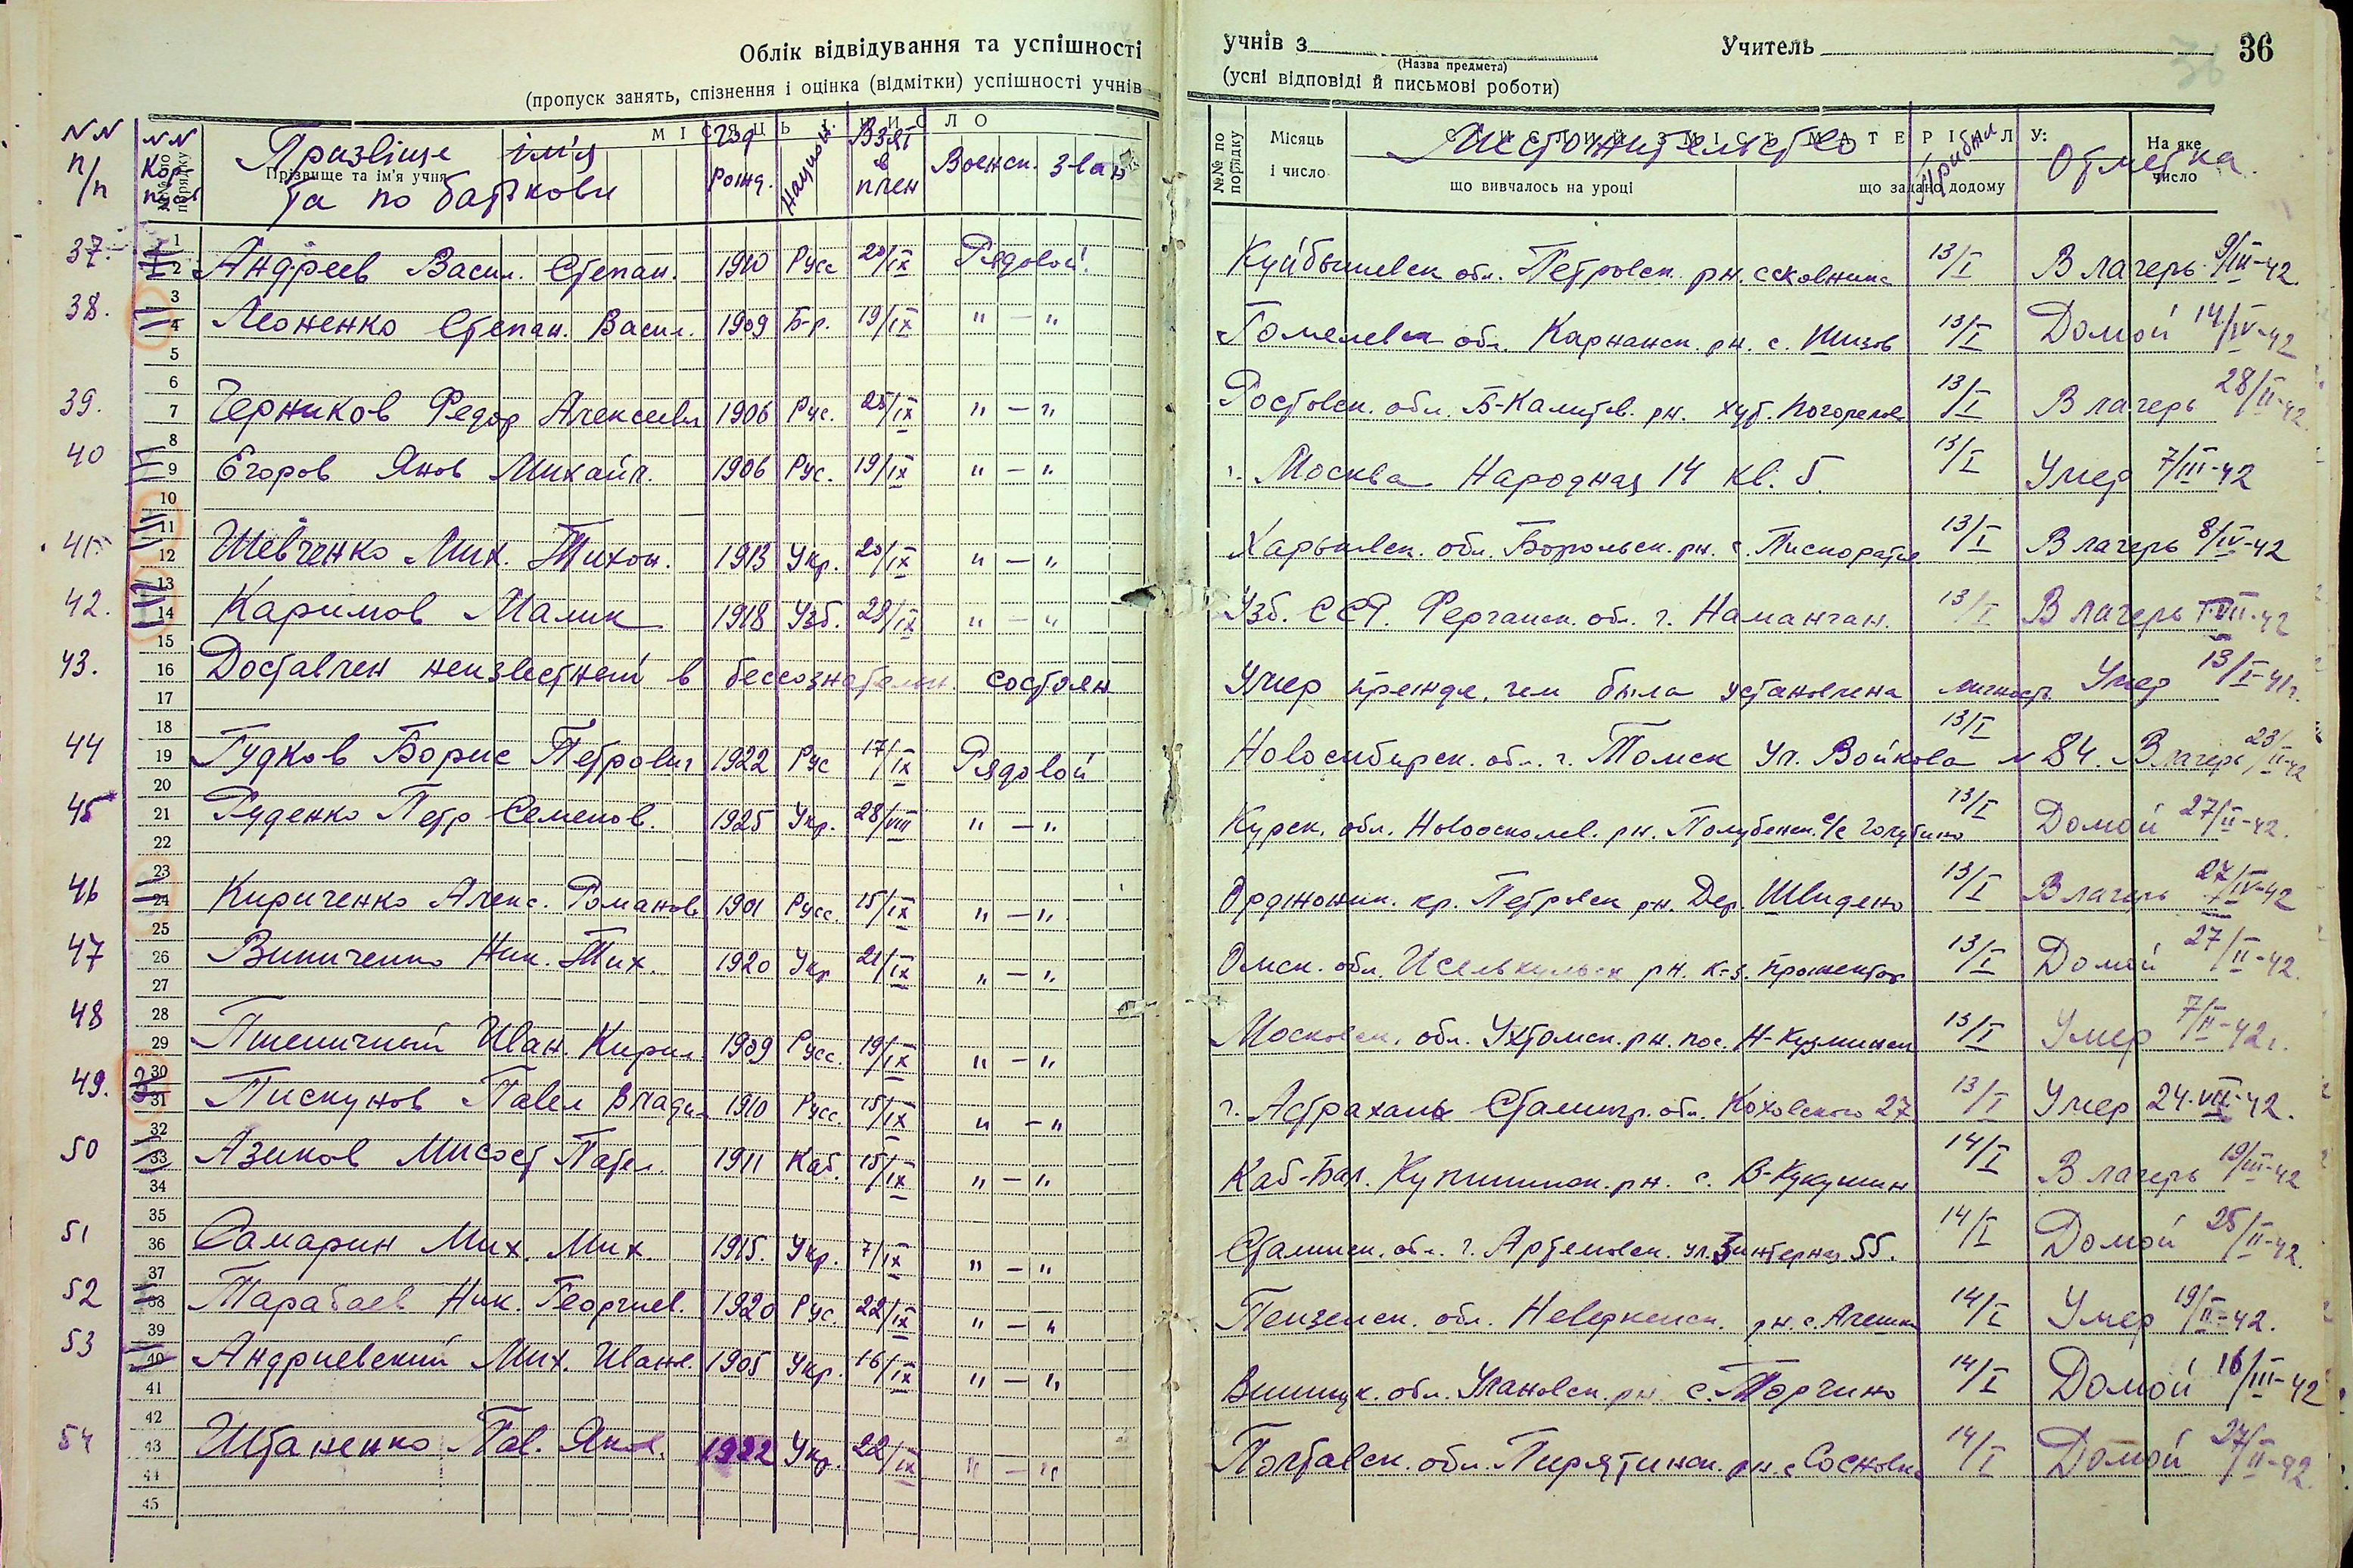 Облік відвідування та успішності учнів з (Назва предмета) Учитель 36
(пропуск занять, спізнення і оцінка (відмітки) успішності учнів (усні відповіді й письмові роботи)
NN п/п NN кор. Призвіще ім'я та по баткови Год рожд. Национ. Взят в плен Военск. зван Местожительство Прибыл Отметка
№№ по порядку Прізвище та ім'я учня МІСЯЦЬ І ЧИСЛО №№ по порядку Місяць і число що вивчалось на уроці що задано додому На яке число
37. Андреев Васил. Степан. 1910 Русс 20/IX Рядовой. Куйбышевск обл. Петровск. рн. 13/I В лагерь 9/III-42
38. Леоненко Степан. Васил. 1909 Б-р. 19/IX " — " Гомелевск обл. рн. с. 13/I Домой 14/IV-42
39. Черников Федор Алексеевич 1906 Рус. 25/IX " — " Ростовск. обл. Б-Калитв. рн. хут. Погорелов 13/I В лагерь 28/II-42
40 Егоров Яков Михайл. 1906 Рус. 19/IX " — " г. Москва Народная 14 кв. 5. 13/I Умер 7/III-42
41 Шевченко Мих. Тихон. 1913 Укр. 20/IX " — " Харьковск. обл. рн. с. 13/I В лагерь 8/IV-42
42. Каримов Малик 1918 Узб. 29/IX " — " Узб. ССР. Ферганск. обл. г. Наманган. 13/I В лагерь
43. Доставлен неизвестный в бессознательн. состоян Умер прежде, чем была установлена личность Умер 13/I-41г.
44 Гудков Борис Петрович 1922 Рус 17/IX Рядовой Новосибирск. обл. г. Томск Ул. Войкова № 84. 13/I В лагерь 23/II-42
45 Руденко Петр Семенов. 1925 Укр. 28/VIII " — " Курск. обл. Новооскольск. рн. с/с Голубино 13/I Домой 27/II-42.
46 Кириченко Алекс. Романов. 1901 Русс. 15/IX " — " Орджоник. кр. Петровск рн. Дер. 13/I В лагерь 27/IV-42
47 Виниченко Ник. Тих. 1920 Укр 21/IX " — " Омск. обл. Иселькульск рн. к-з. Прожектор 13/I Домой 27/II-42.
48 Пшеничный Иван. Кирил. 1909 Русс. 19/IX " — " Московск. обл. Ухтомск. рн. пос. Н-Кузминки 13/I Умер 7/II-42г.
49. Пискунов Павел Влади. 1910 Русс. 15/IX " — " г. Астрахань Сталингр. обл. 27 13/I Умер 24-VII-42.
50 Азиков Мисост 1911 Каб. 15/IX " — " Каб-Бал. рн. с. 14/I В лагерь 19/III-42
51 Самарин Мих. Мих. 1915. Укр. 7/IX " — " Сталинск. обл. г. Артемовск. ул. 3 интернац. 55. 14/I Домой 25/II-42.
52 Тарабаев Ник. Георгиев. 1920 Рус. 22/IX " — " Пензенск. обл. Неверкинск. рн. с. 14/I Умер 19/II-42.
53 Андриевский Мих. Иванов. 1905 Укр. 16/IX " — " Винницк. обл. Улановск. рн. с. Торчино 14/I Домой 16/III-42
54 Штаненко Пав. Яков. 1922 Укр. 22/IX " — " Полтавск. обл. Пирятинск. рн. с Сосновка 14/I Домой 27/II-42.